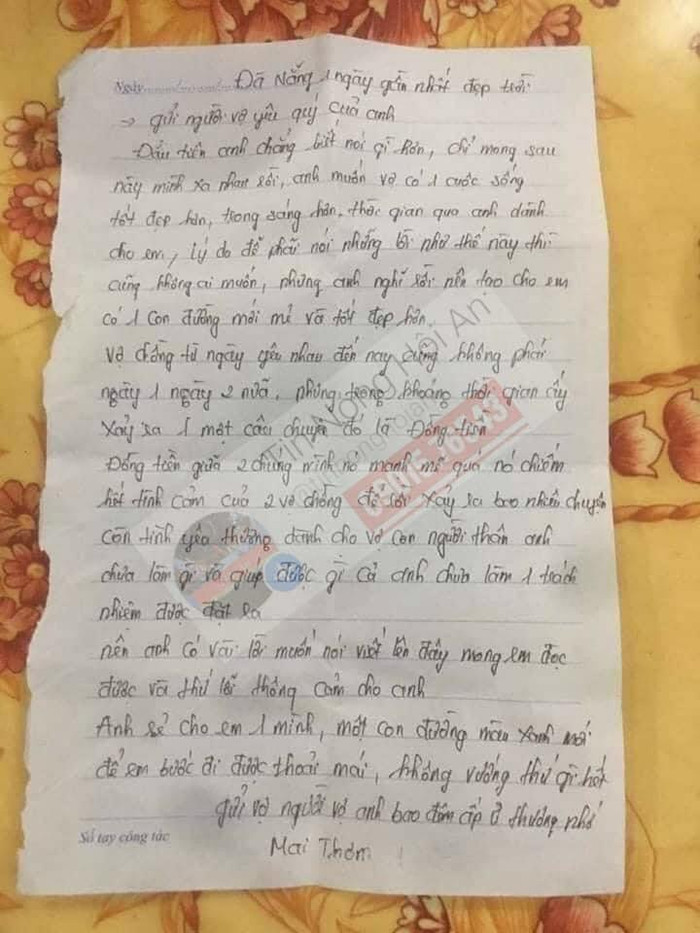 Ngày....../....../...... Đà Nẵng 1 ngày gần nhất đẹp trời
→ gửi người vợ yêu quý của anh
Đầu tiên anh chẳng biết nói gì hơn, chỉ mong sau
này mình xa nhau rồi, anh muốn vợ có 1 cuộc sống
tốt đẹp hơn, trong sáng hơn, thời gian qua anh dành
cho em, lý do để phải nói những lời như thế này thì
cũng không ai muốn, nhưng anh nghĩ rồi nên tạo cho em
có 1 con đường mới mẻ và tốt đẹp hơn.
Vợ chồng từ ngày yêu nhau đến nay cũng không phải
ngày 1 ngày 2 nữa, nhưng trong khoảng thời gian ấy
xảy ra 1 một câu chuyện đó là Đồng tiền
Đồng tiền giữa 2 chúng mình nó mạnh mẽ quá nó chiếm
hết tình cảm của 2 vợ chồng để rồi xảy ra bao nhiêu chuyện
còn tình yêu thương dành cho vợ con người thân anh
chưa làm gì và giúp được gì cả anh chưa làm 1 trách
nhiệm được đặt ra
nên anh có vài lời muốn nói viết lên đây mong em đọc
được và thứ lỗi thông cảm cho anh
Anh sẻ cho em 1 mình, một con đường màu xanh mới
để em bước đi được thoải mái, không vướng thứ gì hết
gửi vợ người vợ anh bao đêm ấp ủ thương nhớ
Sổ tay công tác
Mai Thơm
Tin Nóng Hội An